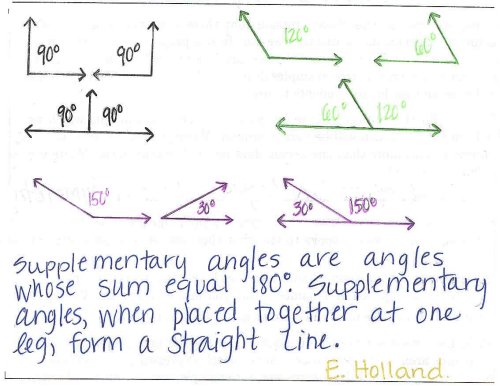 90° 90° 120° 60°
90° 90° 60° 120°
150° 30° 30° 150°
Supplementary angles are angles
whose sum equal 180°. Supplementary
angles, when placed together at one
leg, form a straight line.
E. Holland.